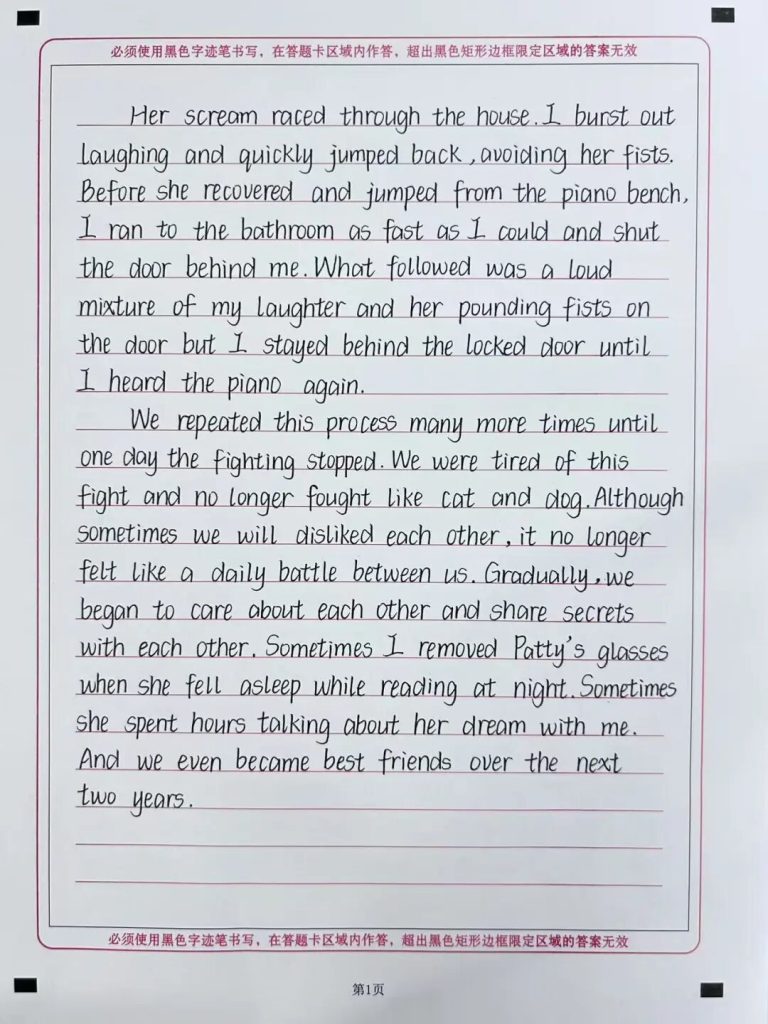 必须使用黑色字迹笔书写，在答题卡区域内作答，超出黑色矩形边框限定区域的答案无效
Her scream raced through the house. I burst out
laughing and quickly jumped back, avoiding her fists.
Before she recovered and jumped from the piano bench,
I ran to the bathroom as fast as I could and shut
the door behind me. What followed was a loud
mixture of my laughter and her pounding fists on
the door but I stayed behind the locked door until
I heard the piano again.
We repeated this process many more times until
one day the fighting stopped. We were tired of this
fight and no longer fought like cat and dog. Although
sometimes we will disliked each other, it no longer
felt like a daily battle between us. Gradually, we
began to care about each other and share secrets
with each other. Sometimes I removed Patty's glasses
when she fell asleep while reading at night. Sometimes
she spent hours talking about her dream with me.
And we even became best friends over the next
two years.
必须使用黑色字迹笔书写，在答题卡区域内作答，超出黑色矩形边框限定区域的答案无效
第1页